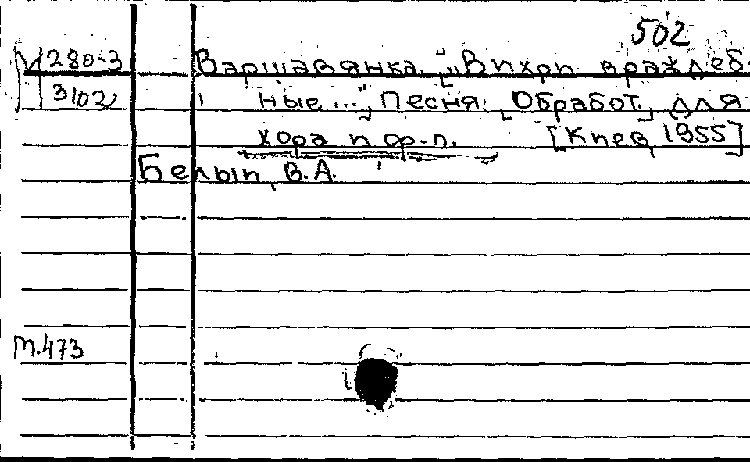 502
М 280-3 Варшавянка. „Вихри враждеб-
3102 ные..." Песня. Обработ. для
хора и ф-п. [Киев, 1955]
Белый, В.А.
М.473